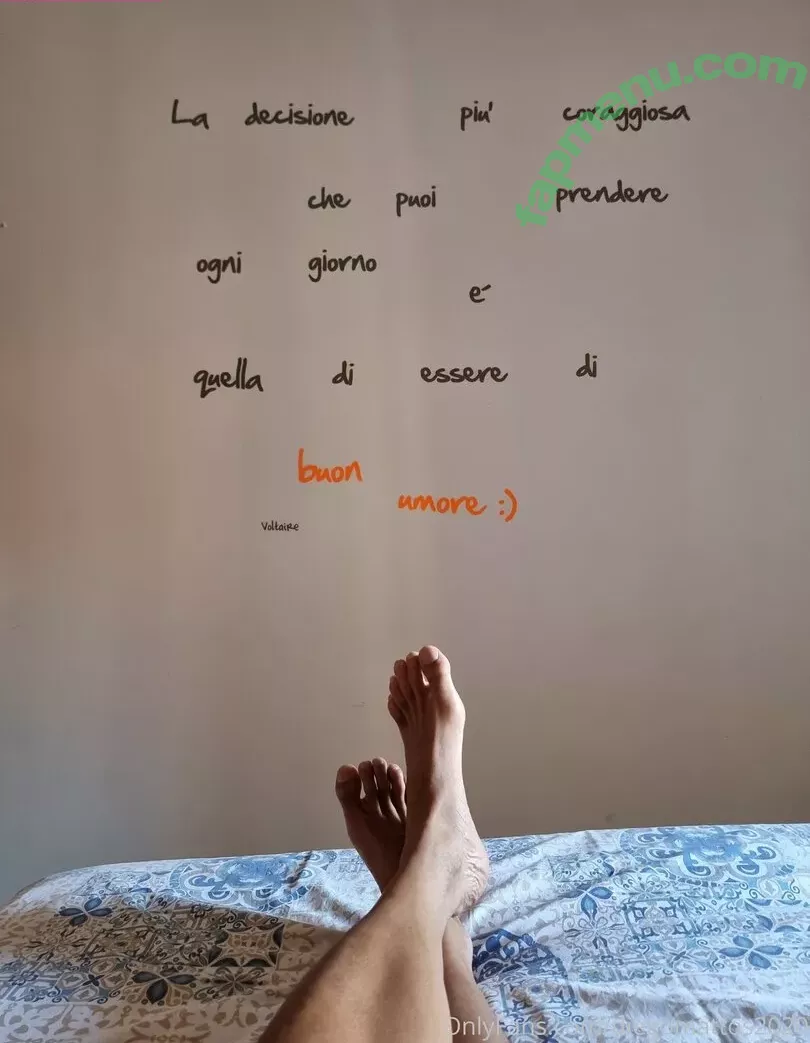 fapmenu.com
La decisione piu' coraggiosa
che puoi prendere
ogni giorno
e'
quella di essere di
buon
umore :)
Voltaire